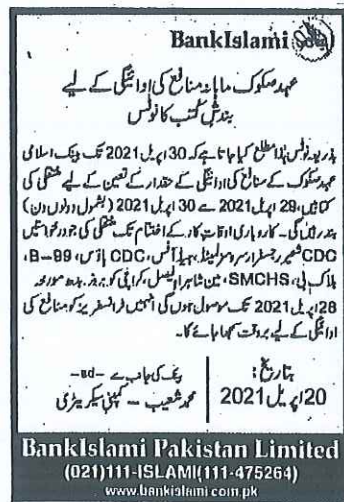 BankIslami
عہد صکوک ماہانہ منافع کی ادائیگی کے لیے
بندش کتب کا نوٹس
بذریعہ نوٹس ہٰذا مطلع کیا جاتا ہے کہ 30 اپریل 2021 تک بینک اسلامی
عہد صکوک کے منافع کی ادائیگی کے حقدار کے تعین کے لیے منتقلی کی
کتابیں، 29 اپریل 2021 سے 30 اپریل 2021 (بشمول دونوں دن)
بند رہیں گی۔ کاروباری اوقات کار کے اختتام تک منتقلی کی جو درخواستیں
CDC شیئر رجسٹرار سروسز لمیٹڈ، ہیڈ آفس، CDC ہاؤس، 99-B،
بلاک بی، SMCHS، مین شاہراہ فیصل، کراچی کو بروز بدھ مورخہ
28 اپریل 2021 تک موصول ہوں گی انہیں ٹرانسفریز کو منافع کی
ادائیگی کے لیے بروقت سمجھا جائے گا۔
بتاریخ:
20 اپریل 2021
بینک کی جانب سے -sd-
محمد شعیب - کمپنی سیکریٹری
BankIslami Pakistan Limited
(021)111-ISLAMI(111-475264)
www.bankislami.com.pk